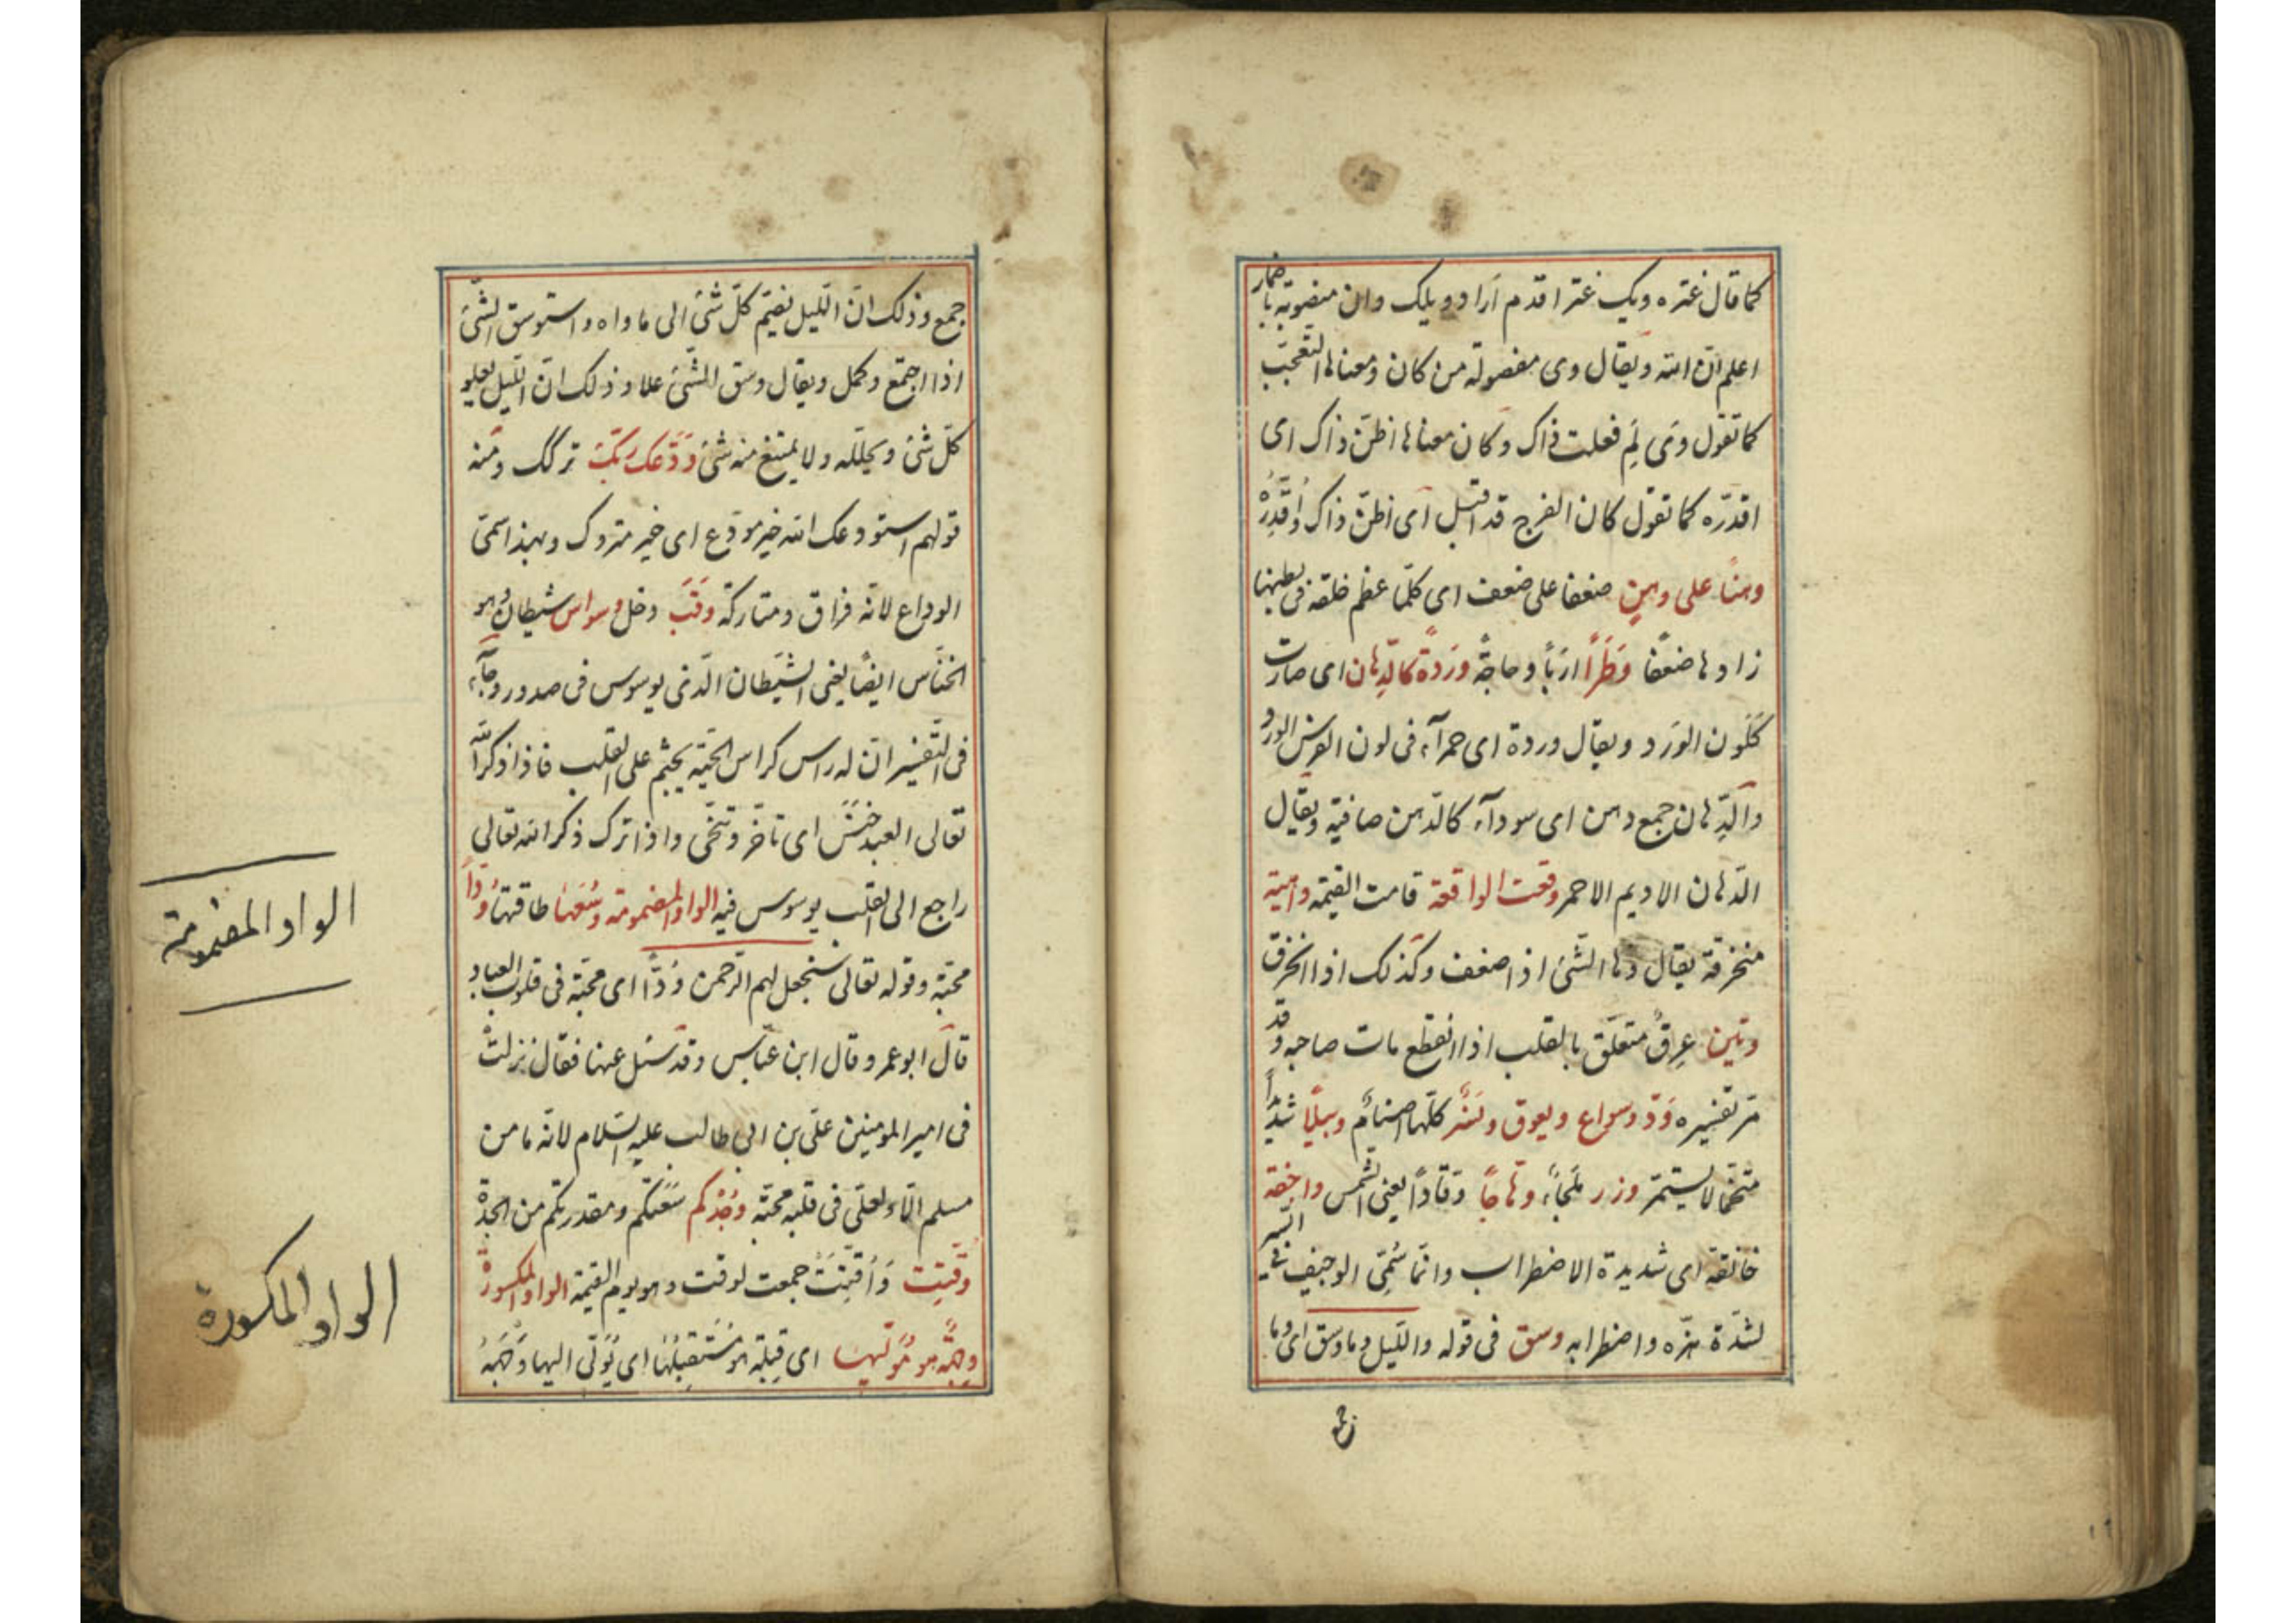 كما قال عنتره ويك عنتر اقدم اراد ويلك وان منصوبة باضمار
اعلم ان الله ويقال وى مفصولة من كان ومعناها التعجب
كما تقول وى لم فعلت ذاك وكان معناها اظن ذاك اى
اقدره كما تقول كان الفرج قد اقبل اى اظن ذاك واقدره
وهنا على وهن ضعفا على ضعف اى كلما عظم خلقه فى بطنها
زادها ضعفا وطرا اربا وحاجة وردة كالدهان اى صارت
كلون الورد ويقال وردة اى حمرآء فى لون الفرس الورد
والدهان جمع دهن اى سودآء كالدهن صافية ويقال
الدهان الاديم الاحمر وقعت الواقعة قامت القيمة واهية
منخرقة يقال وها الشئ اذا ضعف وكذلك اذا انخرق
وتين عرق متعلق بالقلب اذا انقطع مات صاحبه وقد
مر تفسيره ود وسواع ويعوق ونسر كلها اصنام وبيلا شديدا
متخما لا يستمر وزر ملجاء وهاجا وقادا يعنى الشمس واجفة
خافقة اى شديدة الاضطراب وانما سمى الوجيف فى السير
لشدة هزه واضطرابه وسق فى قوله والليل وما وسق اى وما
جمع وذلك ان الليل يضم كل شئ الى ماواه واستوسق الشئ
اذا اجتمع وكمل ويقال وسق الشئ علا وذلك ان الليل يعلو
كل شئ ويجلله ولا يمتنع منه شئ ودعك ربك تركك ومنه
قولهم استودعك الله خير مودع اى خير متروك وبهذا سمى
الوداع لانه فراق ومتاركة وقب دخل وسواس شيطان وهو
الخناس ايضا يعنى الشيطان الذى يوسوس فى صدور وجآء
فى التفسير ان له راس كراس الحية يجثم على القلب فاذا ذكر الله
تعالى العبد خنس اى تاخر وتنحى واذا ترك ذكر الله تعالى
راجع الى القلب يوسوس فيه الواو المضمومة وسعها طاقتها ودا
محبة وقوله تعالى سنجعل لهم الرحمن ودا اى محبة فى قلوب العباد
قال ابو عمر وقال ابن عباس وقد سئل عنها فقال نزلت
فى امير المومنين على بن ابى طالب عليه السلام لانه ما من
مسلم الا ولعلى فى قلبه محبة وجدكم سعتكم ومقدرتكم من الجدة
وقتت واقتت جمعت لوقت وهو يوم القيمة الواو المكسورة
وجهة هو موليها اى قبلة هو مستقبلها اى يولى اليها وجهه
الواو المضمومة
الواو المكسورة